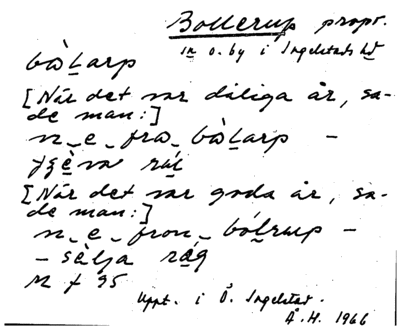 Bollerup propr.
in o. by i Ingelstads hd
bòḻarp
[När det var dåliga år, sa-
de man:]
n_e_fra_bòḻarp –
rág
[När det var goda år, sa-
de man:]
n_e_fron_bólrup –
– sèlja rág
M f 95
Uppt. i Ö. Ingelstad.
Å.H. 1966